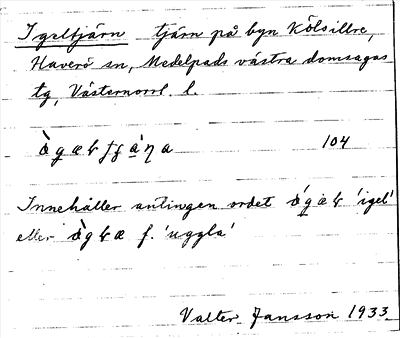 Igeltjärn tjärn på byn Kölsillre,
Haverö sn, Medelpads västra domsagas
tg, Västernorrl. l.
104
Innehåller antingen ordet 'igel'
eller f. 'uggla'
Valter Jansson 1933.